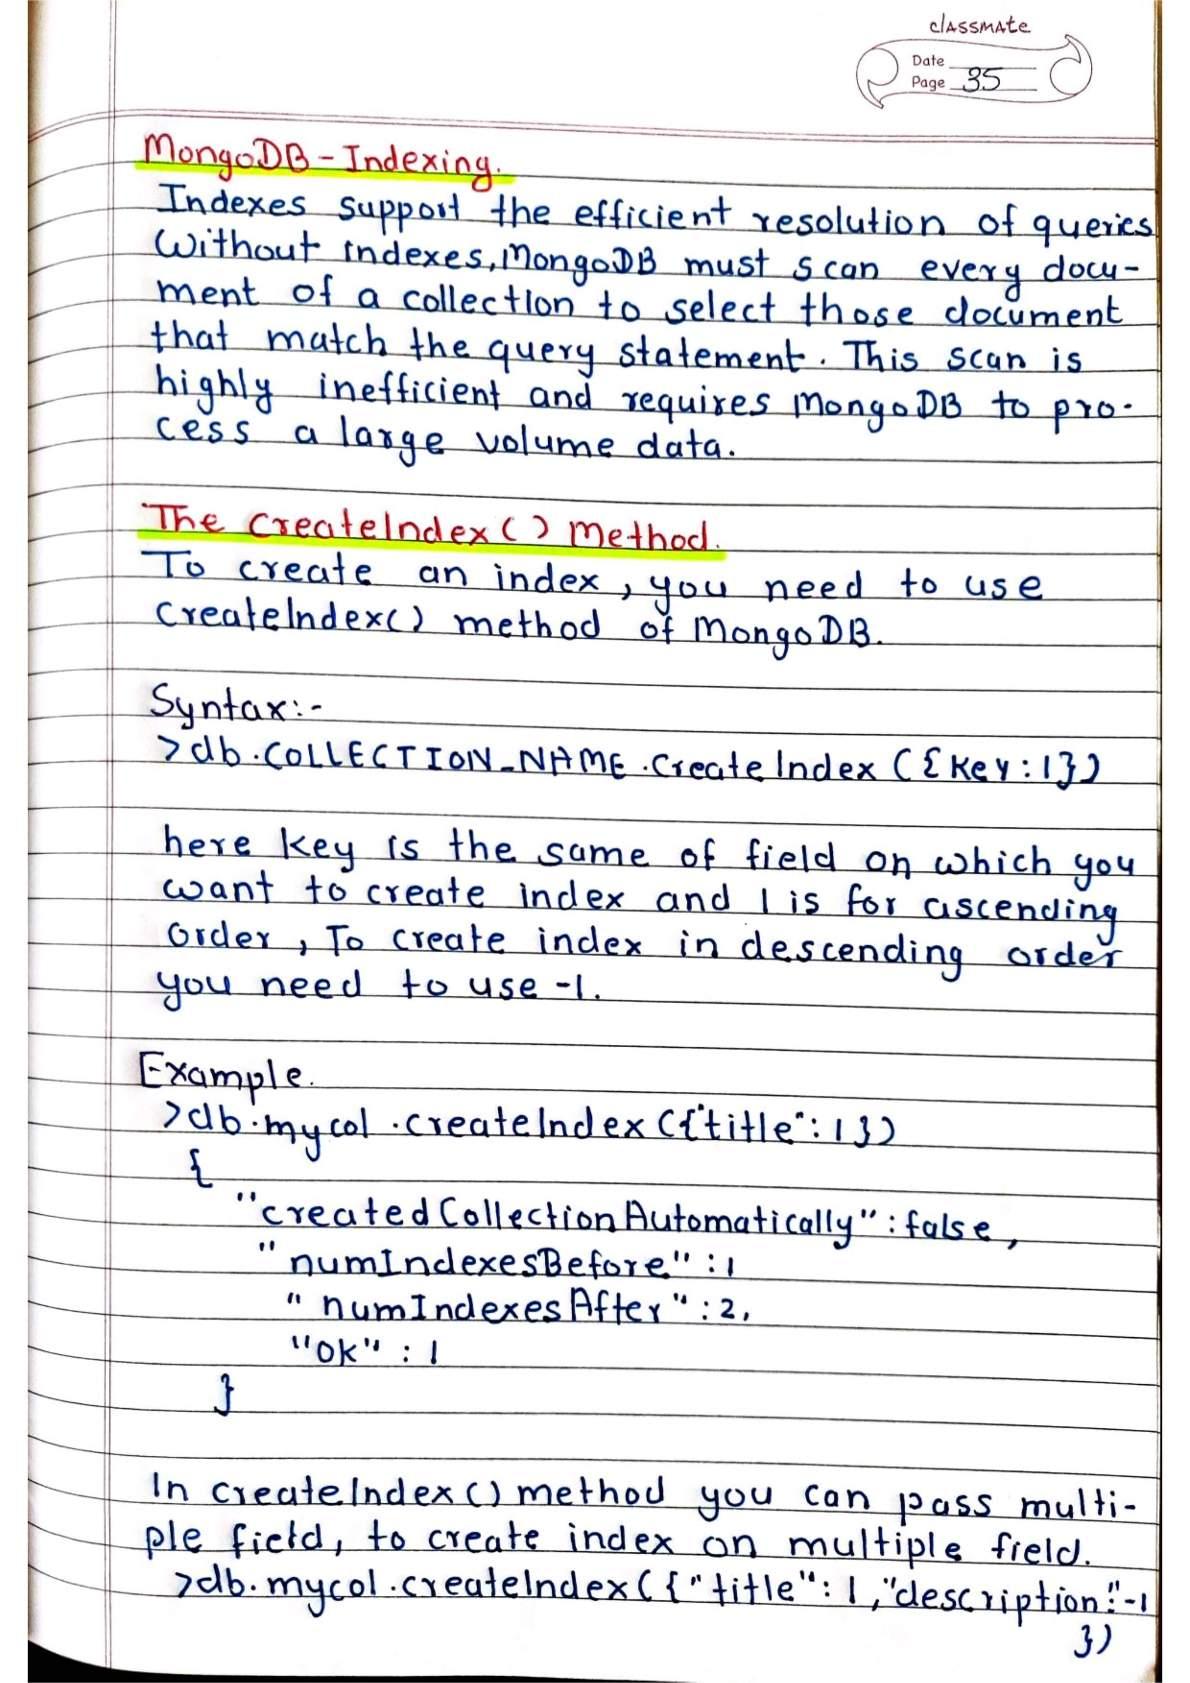 classmate
Date
Page 35
MongoDB - Indexing.
Indexes support the efficient resolution of queries
Without indexes, MongoDB must scan every docu-
ment of a collection to select those document
that match the query statement. This scan is
highly inefficient and requires MongoDB to pro-
cess a large volume data.
The CreateIndex() Method.
To create an index, you need to use
CreateIndex() method of MongoDB.
Syntax:-
>db.COLLECTION_NAME.CreateIndex({Key:1})
here key is the same of field on which you
want to create index and 1 is for ascending
order, To create index in descending order
you need to use -1.
Example.
>db.mycol.createIndex({"title":1})
{
"createdCollectionAutomatically":false,
"numIndexesBefore":1
"numIndexesAfter":2,
"ok":1
}
In createIndex() method you can pass multi-
ple field, to create index on multiple field.
>db.mycol.createIndex({"title":1,"description":-1
})